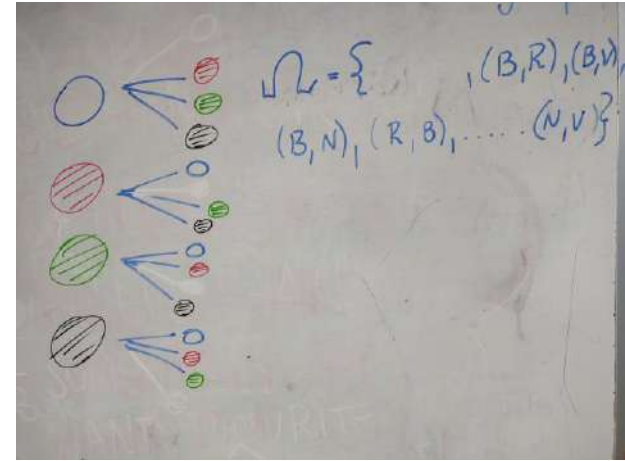 Ω = {        , (B,R), (B,V),
(B,N), (R,B), ...... (N,V)}